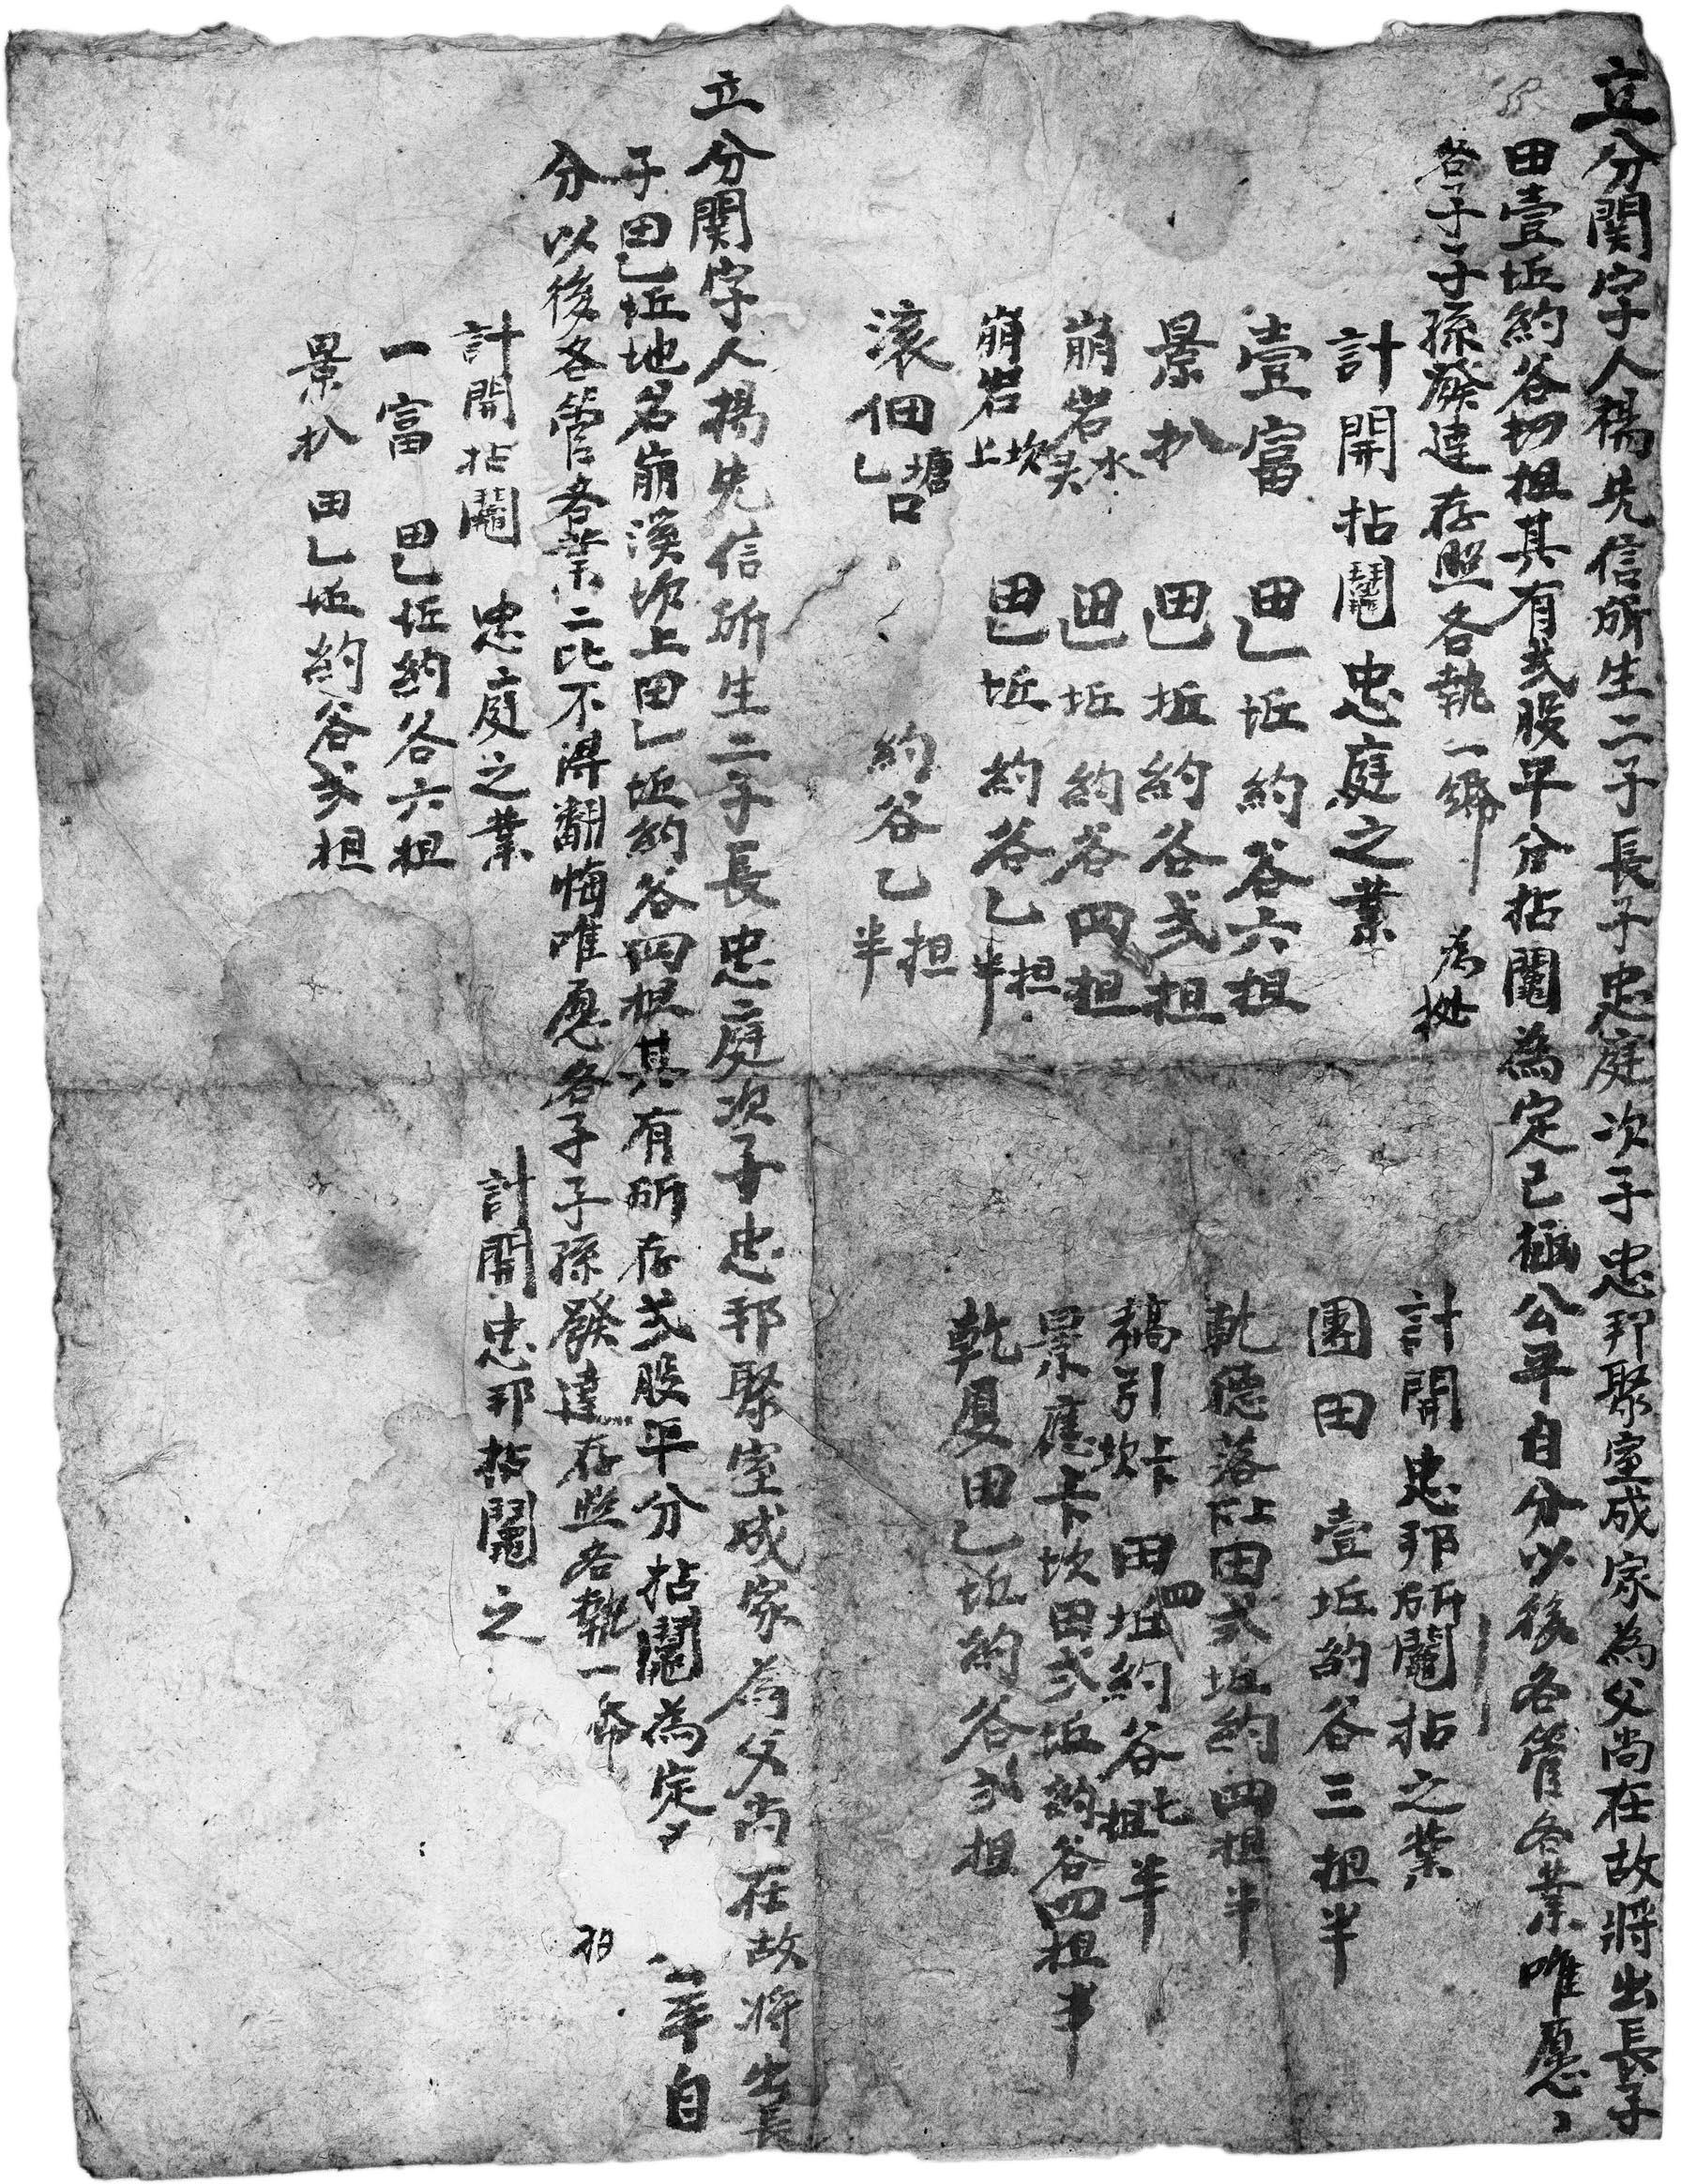 立分関字人楊先信所生二子長子忠庭次子忠邦聚室成家為父尚在故將出長子
田壹坵約谷切担其有弍股平分拈鬮為定已極公平自分以後各管各業唯愿
各子子孫發達存照各執一紙 為拠
計開拈鬮忠庭之業
壹富 田乙坵約谷六担
景扒 田乙坵約谷弍担
崩岩水头 田乙坵約谷四担
崩岩坎上 田乙坵約谷乙担半
滚佃塘口乙 約谷乙担半
計開忠邦所鬮拈之業
團田 壹坵約谷三担半
乾聴落 田弍坵約四担半
稿引坎卡 田四坵約谷七担半
景應卡坎田弍坵約谷四担半
乾廈田乙坵約谷弍担
立分関字人楊先信所生二子長忠庭次子忠邦聚室成家為父尚在故將出長
子田乙坵地名崩溪坎上田乙坵約谷四担其有所存弍股平分拈鬮為定 公平自
分以後各管各業二比不得翻悔唯愿各子子孫發達存照各執一紙
計開拈鬮 忠庭之業
一富 田乙坵約谷六担
景扒 田乙坵約谷弍担
計開忠邦拈鬮之